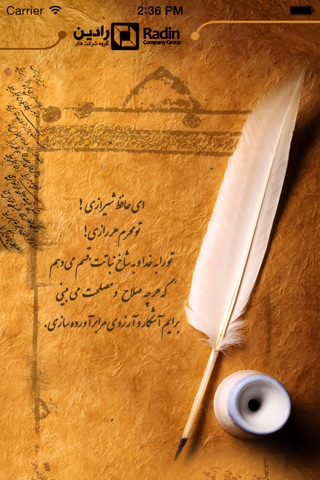 Carrier 2:36 PM
رادین
گروه شرکت های
Radin
Company Group
ای حافظ شیرازی !
تو محرم هر رازی !
تو را به خدا و به شاخ نباتت قسم می دهم
که هر چه صلاح و مصلحت می بینی
برایم آشکار و آرزوی مرا برآورده سازی.